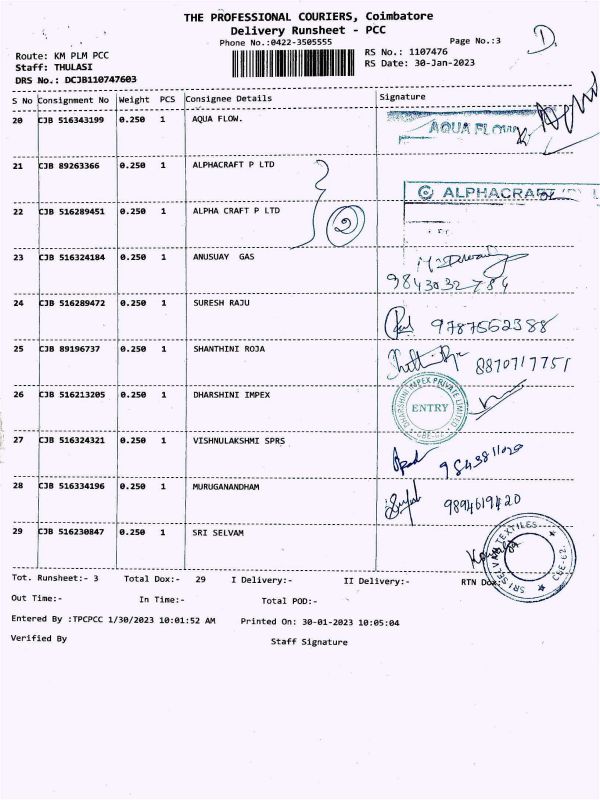 THE PROFESSIONAL COURIERS, Coimbatore
Delivery Runsheet - PCC
Phone No.:0422-3505555
Page No.:3
D.
Route: KM PLM PCC
RS No.: 1107476
Staff: THULASI
RS Date: 30-Jan-2023
DRS No.: DCJB110747603
S No Consignment No Weight PCS Consignee Details Signature
20 CJB 516343199 0.250 1 AQUA FLOW. AQUA FLOW
21 CJB 89263366 0.250 1 ALPHACRAFT P LTD
ALPHACRAFT
22 CJB 516289451 0.250 1 ALPHA CRAFT P LTD 2
23 CJB 516324184 0.250 1 ANUSUAY GAS
9843032784
24 CJB 516289472 0.250 1 SURESH RAJU
9787562388
25 CJB 89196737 0.250 1 SHANTHINI ROJA
8870717751
26 CJB 516213205 0.250 1 DHARSHINI IMPEX
DHARSHINI IMPEX PRIVATE LIMITED
ENTRY
CBE-62
27 CJB 516324321 0.250 1 VISHNULAKSHMI SPRS
28 CJB 516334196 0.250 1 MURUGANANDHAM
9894619420
29 CJB 516230847 0.250 1 SRI SELVAM
SRI SELVAM TEXTILES CBE-62.
Tot. Runsheet:- 3 Total Dox:- 29 I Delivery:- II Delivery:- RTN Dox:
Out Time:- In Time:- Total POD:-
Entered By :TPCPCC 1/30/2023 10:01:52 AM Printed On: 30-01-2023 10:05:04
Verified By Staff Signature